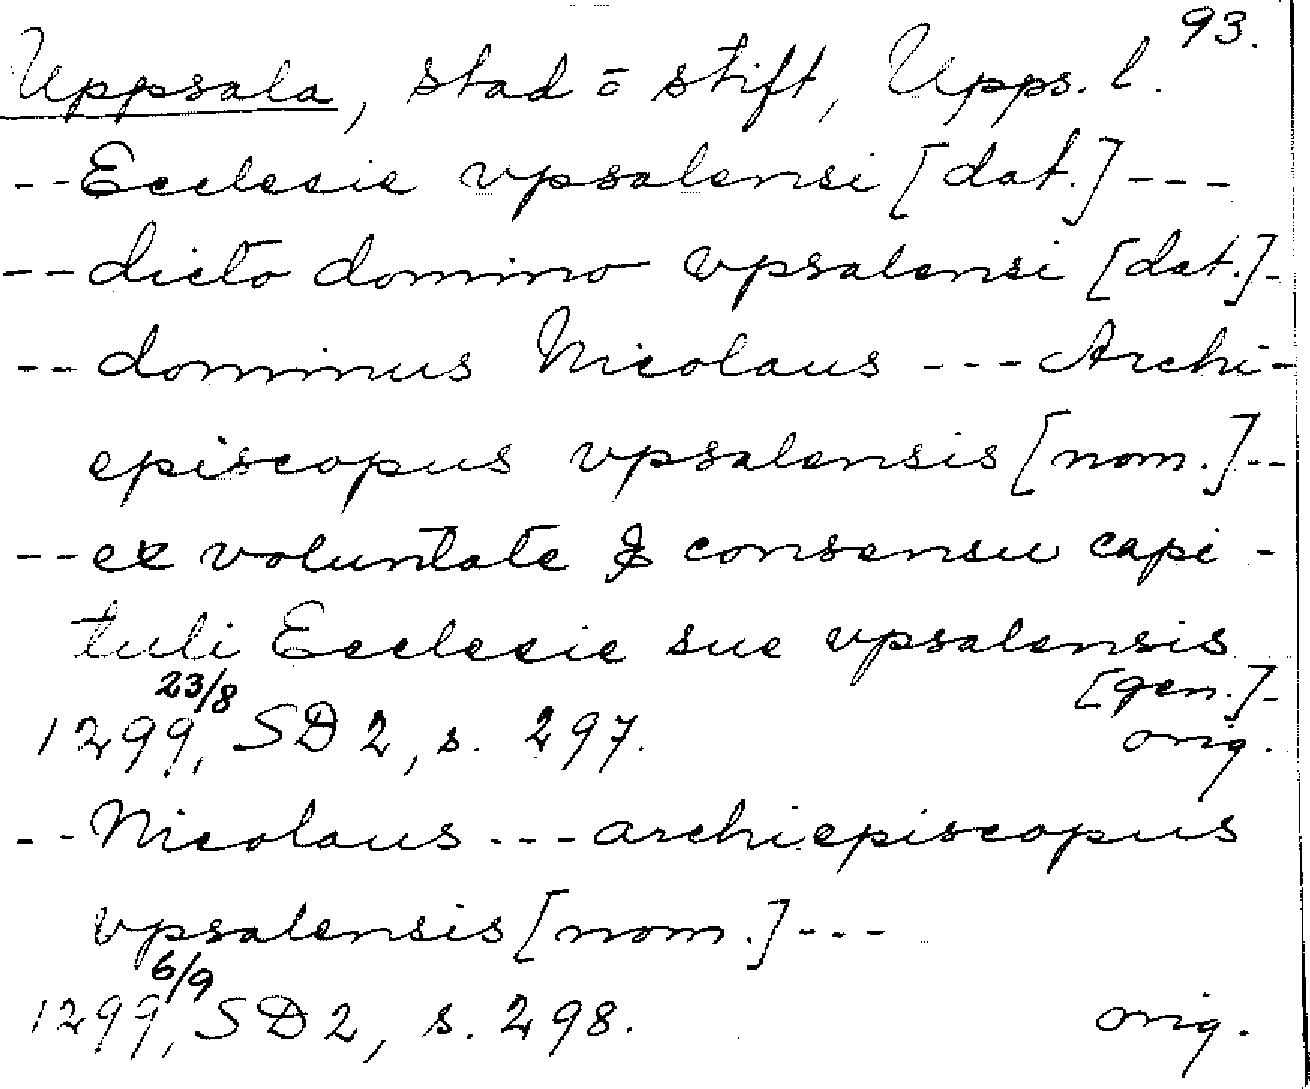 93.
Uppsala, stad o stift, Upps. l.
--Ecclesie vpsalensi [dat.]---
--dicto domino vpsalensi [dat.]-
--dominus Nicolaus ---Archi-
episcopus vpsalensis [nom.]--
--ex voluntate & consensu capi-
tuli Ecclesie sue vpsalensis
[gen.]-
1299 23/8, SD 2, s. 297. orig.
--Nicolaus ---archiepiscopus
vpsalensis [nom.]---
1299 6/9, SD 2, s. 298. orig.